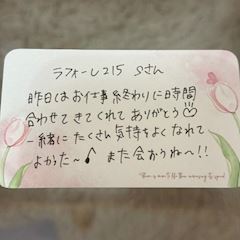 ラフォーレ215 Sさん
昨日はお仕事終わりに時間
合わせてきてくれてありがとう
一緒にたくさん気持ちよくなれて
よかった〜♪ また会おうね〜!!